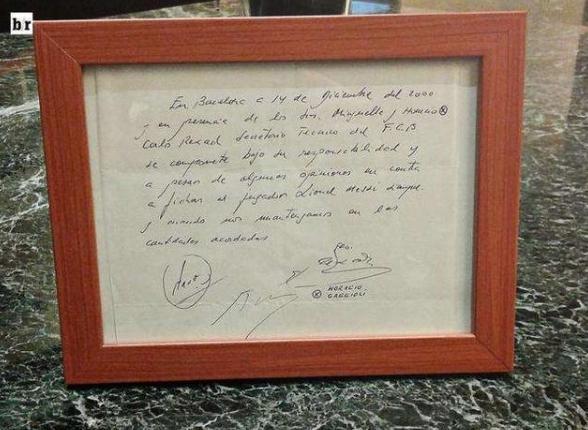 br
En Barcelona a 14 de Diciembre del 2000
y en presencia de los Sres. Minguella y Horacio ⊗
Carlos Rexach Secretario Tecnico del F.C.B
se compromete bajo su responsabilidad y
a pesar de algunas opiniones en contra
a fichar al jugador Lionel Messi siempre
y cuando nos mantengamos en las
cantidades acordadas
⊗ HORACIO
GAGGIOLI